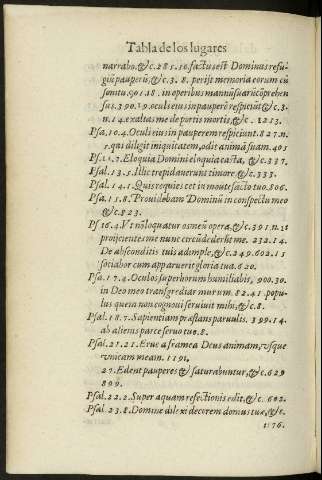 Tabla de los lugares
narrabo, &c. 285. 16. factus est Dominus refu-
giũ pauperũ, &c. 3. 8. perijt memoria eorum cũ
sonitu. 901. 18. in operibus mannũ suarũ cõprehen
sus. 390. 19. oculi eius in pauperẽ respiciũt &c. 3.
n. 14. exaltas me de portis mortis, &c. 1213.
Psa. 10. 4. Oculi eius in pauperem respiciunt. 827. n.
5. qui diligit iniquitatem, odit animã suam. 405
Ps. 11. 7. Eloquia Domini eloquia casta, &c. 337.
Psal. 13. 5. Illic trepidaverunt timore, &c. 333.
Psal. 14. 1. Quis requiescet in monte sacto tuo. 806.
Psa. 15. 8. Providebam Dominũ in conspectu meo
&c. 823.
Ps 16. 4. Vt nõ loquatur os meũ opera, &c. 391 n. 11
proijcientes me nunc circũdederũt me. 232. 14.
De absconditis tuis adẽple, &c. 249. 602. 15
satiabor cum apparuerit gloria tua. 620.
Psa. 17. 4. Oculos superborum humiliabis, 900. 30.
in Deo meo transgrediar murum. 82. 41. popu-
lus quem non cognoui seruiuit mihi, &c. 8.
Psal. 18. 7. Sapientiam præstans paruulis. 399. 14.
ab alienis parce seruo tuo. 8.
Psal. 21. 21. Erue a framea Deus animam, vsque
vnicam meam. 1191,
27. Edent pauperes & saturabuntur, &c. 629
899.
Psal. 22. 2. Super aquam refectionis edit, &c. 602.
Psal. 23. 8. Domine dilexi decorem domus tuæ, &c.
1176.